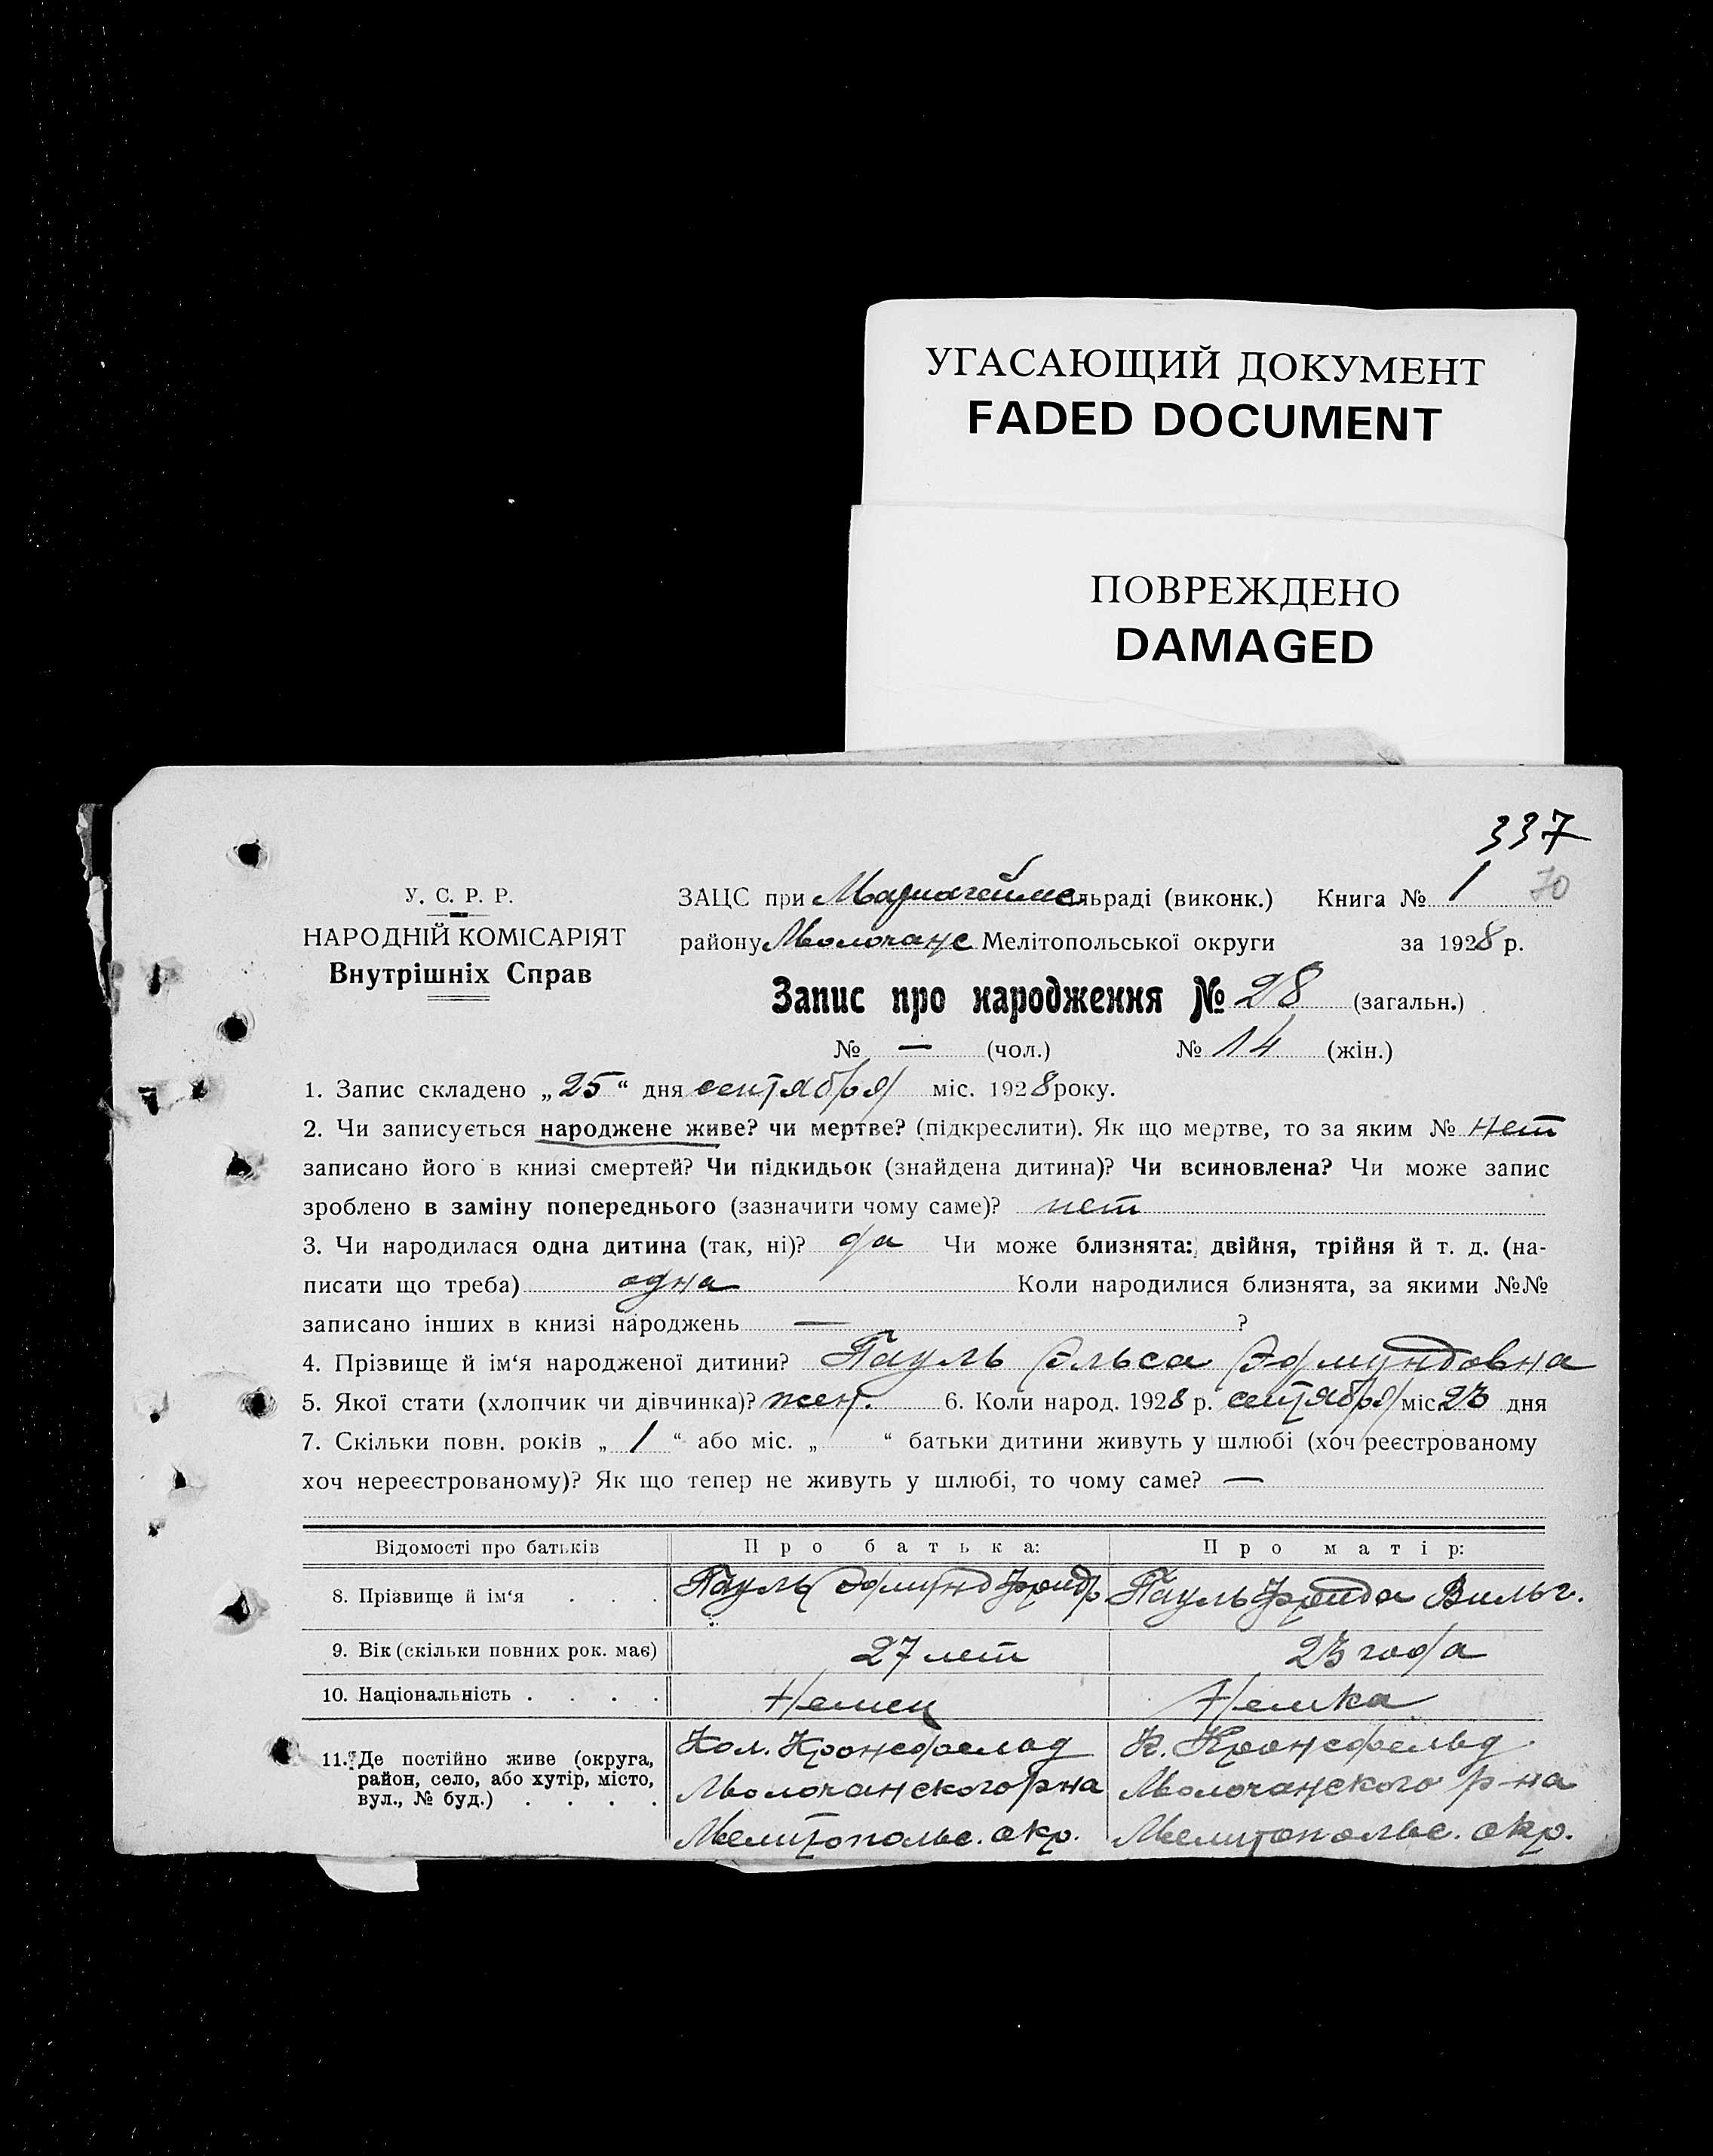 УГАСАЮЩИЙ ДОКУМЕНТ
FADED DOCUMENT
ПОВРЕЖДЕНО
DAMAGED
337
У. С. Р. Р.
НАРОДНІЙ КОМІСАРІЯТ
Внутрішніх Справ
ЗАЦС при Мариагеймс льраді (виконк.) Книга № 1 70
району Молочанс Мелітопольської округи за 1928 р.
Запис про народження № 28 (загальн.)
№ — (чол.) № 14 (жін.)
1. Запис складено „25“ дня сентября міс. 1928 року.
2. Чи записується народжене живе? чи мертве? (підкреслити). Як що мертве, то за яким № нет
записано його в книзі смертей? Чи підкидьок (знайдена дитина)? Чи всиновлена? Чи може запис
зроблено в заміну попереднього (зазначити чому саме)? нет
3. Чи народилася одна дитина (так, ні)? да Чи може близнята: двійня, трійня й т. д. (на-
писати що треба) одна Коли народилися близнята, за якими №№
записано інших в книзі народжень — ?
4. Прізвище й ім‘я народженої дитини? Пауль Эльса Эдмундовна
5. Якої стати (хлопчик чи дівчинка)? жен. 6. Коли народ. 1928 р. сентября міс 23 дня
7. Скільки повн. років „ 1 “ або міс. „ “ батьки дитини живуть у шлюбі (хоч реєстрованому
хоч нереєстрованому)? Як що тепер не живуть у шлюбі, то чому саме? —
Відомості про батьків Про батька: Про матір:
8. Прізвище й ім‘я . . . Пауль Эдмунд Фридр Пауль Фрида Вильг.
9. Вік (скільки повних рок. має) 27 лет 23 года
10. Національність . . . . Немец Немка
11. Де постійно живе (округа, район, село, або хутір, місто, вул., № буд.) . . . .
Кол. Кронсфельд
Молочанского р-на
Мелитопольс. окр.
К. Кронсфельд
Молочанского р-на
Мелитопольс. окр.